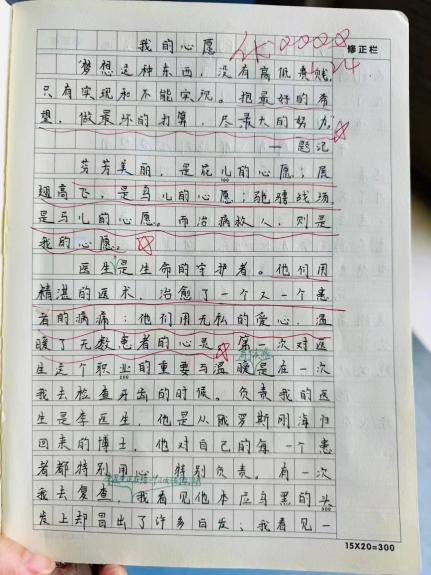 我的心愿
修正栏
梦想是种东西,没有高低贵贱,
只有实现和不能实现。抱最好的希
望,做最坏的打算,尽最大的努力。
——题记
芬芳美丽,是花儿的心愿;展
翅高飞,是鸟儿的心愿;驰骋战场
是马儿的心愿。而治病救人,则是
我的心愿。
医生是生命的守护者。他们用
精湛的医术,治愈了一个又一个患
者的病痛;他们用无私的爱心,温
暖了无数患者的心灵。第一次对医
生这个职业的重要与温暖是在一次
我去检查牙齿的时候。负责我的医
生是李医生,他是从俄罗斯刚海归
回来的博士,他对自己的每一个患
者都特别用心,特别负责。有一次
我去复查,我看见他本应乌黑的头
发上却冒出了许多白发;我看见一
15X20=300